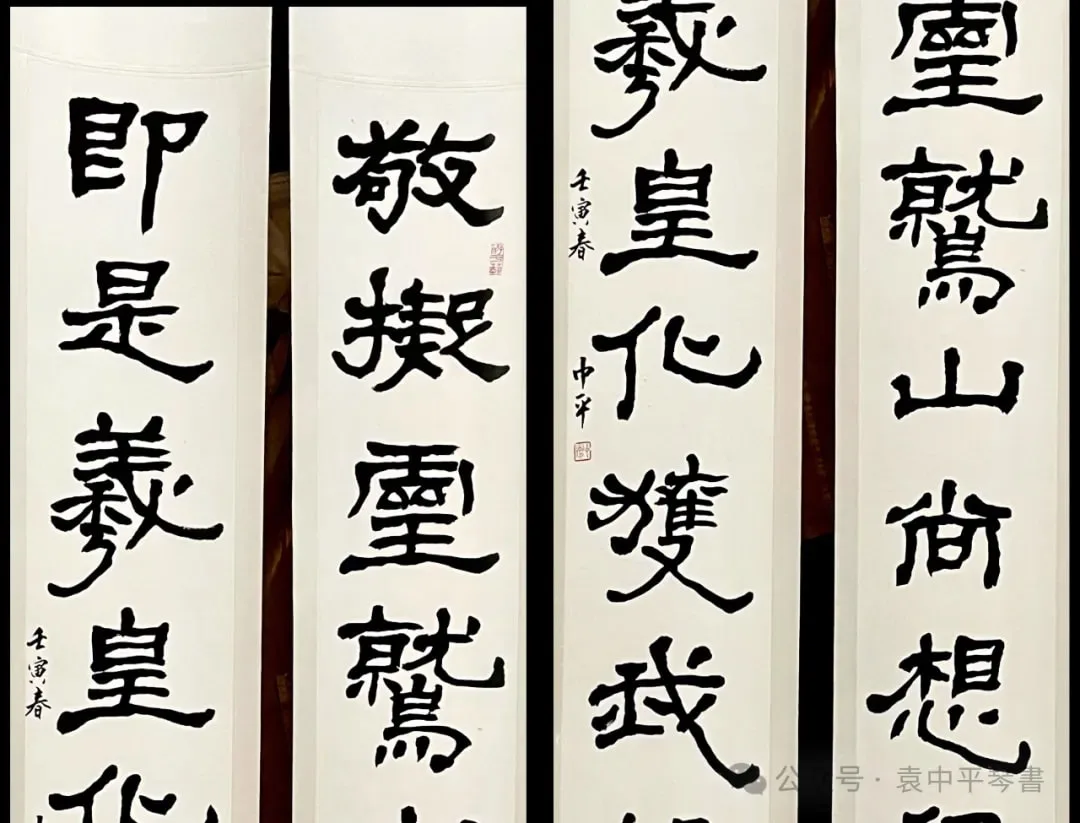 敬擬靈鷲
即是羲皇化
壬寅春
靈鷲山尚想
羲皇化獲我
壬寅春 中平
公众号·袁中平琴書